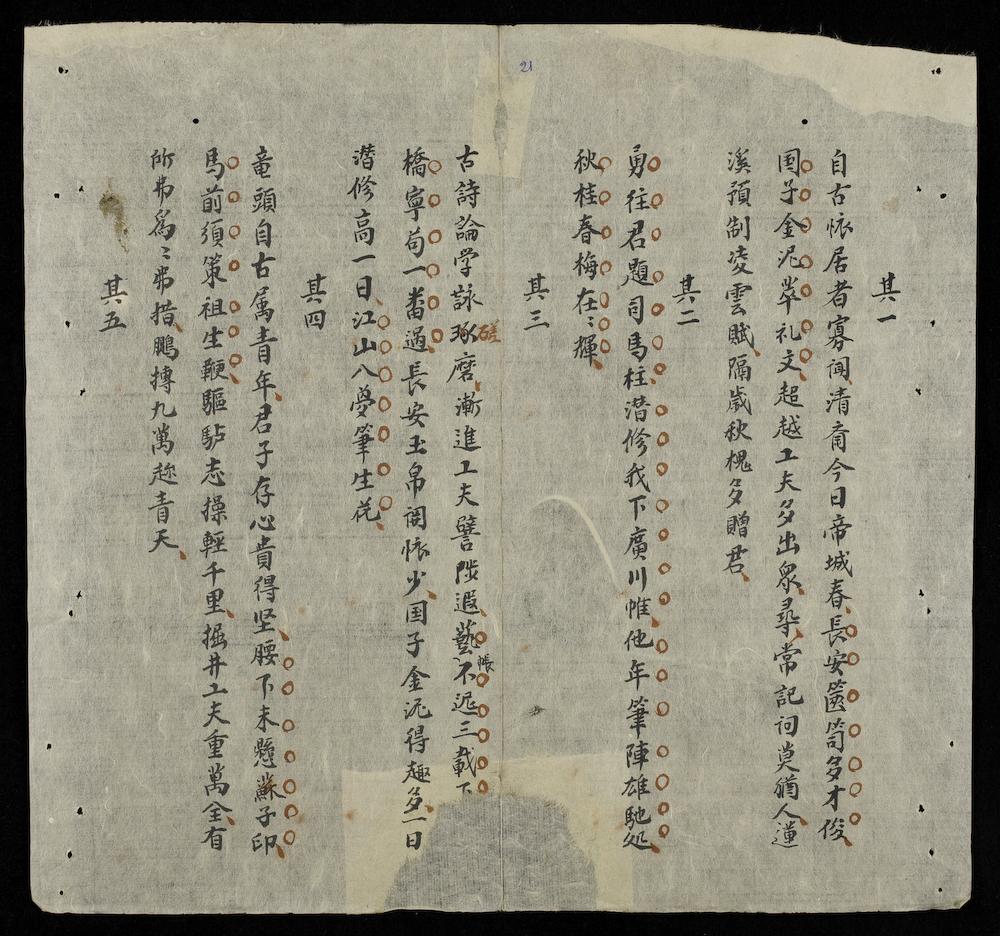 21
其一
自古懷居者寡闻清斋今日帝城春長安篋笥多才俊
国子金泥萃礼文超越工夫多出眾尋常記词莫猶人蓮
溪預制凌雲賦隔歲秋槐多贈君
其二
勇往君題司馬柱潜修我下廣川帷他年筆陣雄馳処
秋桂春梅在〻輝
其三
古詩論学詠琢磨漸進工夫譬陟遐藝不迟三載下
磋
帳
橋寧苟一畨過長安玉帛関懷少国子金泥得趣多一日
潜修高一日江山八夢筆生花
其四
竜頭自古属青年君子存心貴得坚腰下未懸蘇子印
馬前須策祖生鞭驅馿志操輕千里掘井工夫重萬全有
所弗爲〻弗措鵬摶九萬趂青天
其五